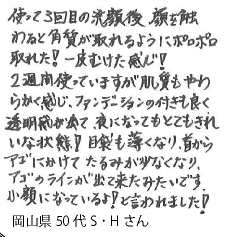 使って3回目の洗顔後、顔を触
わると角質が取れるようにポロポロ
取れた！一皮むけた感じ！
2週間使っていますが肌質もやわ
らかく感じ、ファンデーションの付きも良く
透明感が出て、夜になってもとてもきれ
いな状態！目袋も薄くなり、首から
アゴにかけてたるみが少なくなり、
アゴのラインが出て来たみたいです。
小顔になっているよ！と言われました！
岡山県 50代 S・Hさん